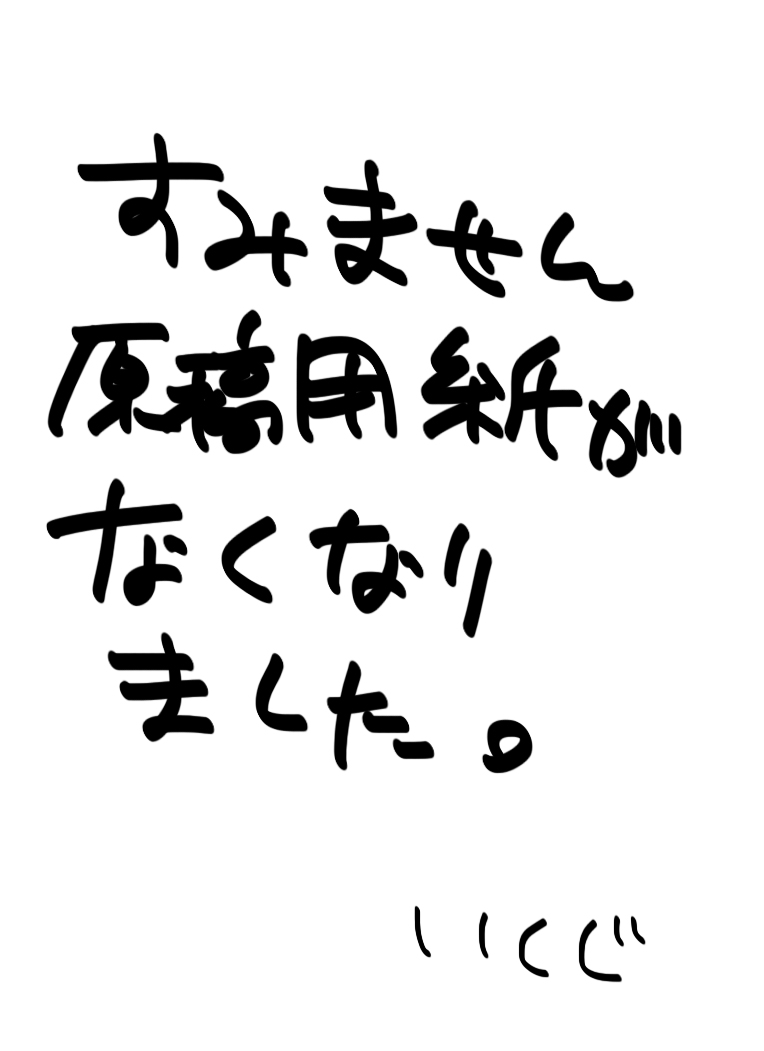 すみません
原稿用紙が
なくなり
ました。
いくじ